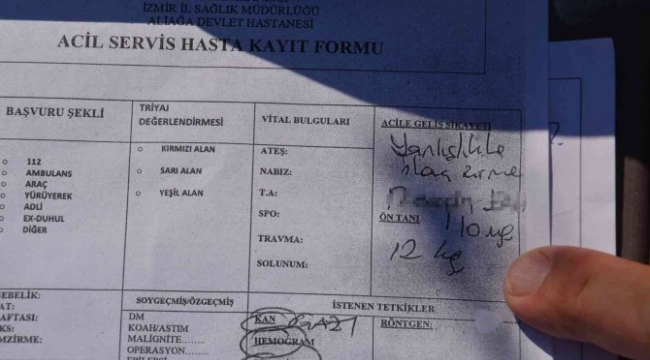 İZMİR İL SAĞLIK MÜDÜRLÜĞÜ
ALİAĞA DEVLET HASTANESİ
ACİL SERVİS HASTA KAYIT FORMU
BAŞVURU ŞEKLİ
○ 112
○ AMBULANS
○ ARAÇ
○ YÜRÜYEREK
○ ADLİ
○ EX-DUHUL
○ DİĞER
TRİYAJ
DEĞERLENDİRMESİ
○ KIRMIZI ALAN
○ SARI ALAN
○ YEŞİL ALAN
VİTAL BULGULARI
ATEŞ:
NABIZ:
T.A:
SPO:
TRAVMA:
SOLUNUM:
ACİLE GELİŞ ŞİKAYETİ
Yanlışlıkla
ilaç
ÖN TANI
10 mg
12 kg
GEBELİK:
SOYGEÇMİŞ/ÖZGEÇMİŞ
DM
KOAH/ASTIM
MALİGNİTE........
OPERASYON.......
İSTENEN TETKİKLER
KAN GAZI
HEMOGRAM
RÖNTGEN: